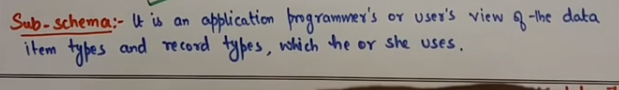 Sub-schema:- It is an application programmer's or user's view of the data
item types and record types, which he or she uses.